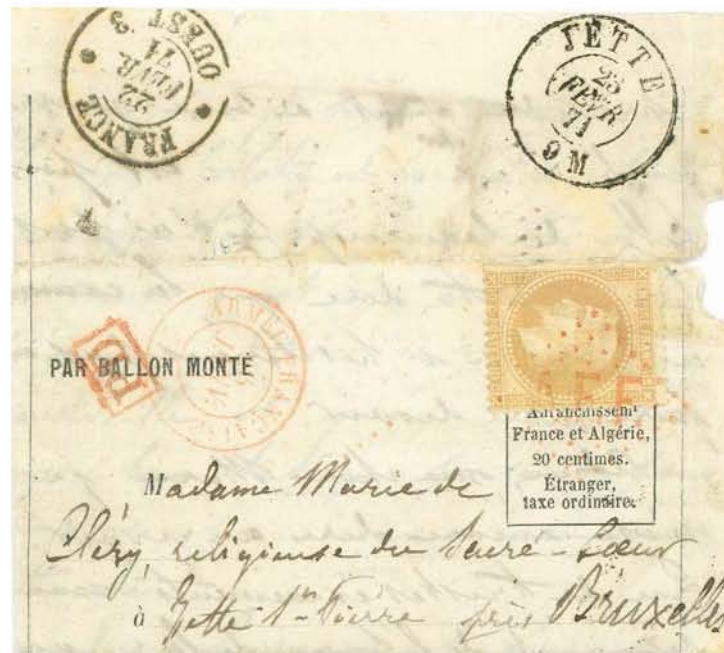 FRANCE
22
FEVR
71
OUEST 3
JETTE
23
FEVR
71
9 M
PD
ARMÉE FRANÇAISE
PAR BALLON MONTÉ
Affranchissemt
France et Algérie,
20 centimes.
Étranger,
taxe ordinaire.
Madame Marie de
Cléry, religieuse du Sacré-Coeur
à Jette St-Pierre près Bruxelles